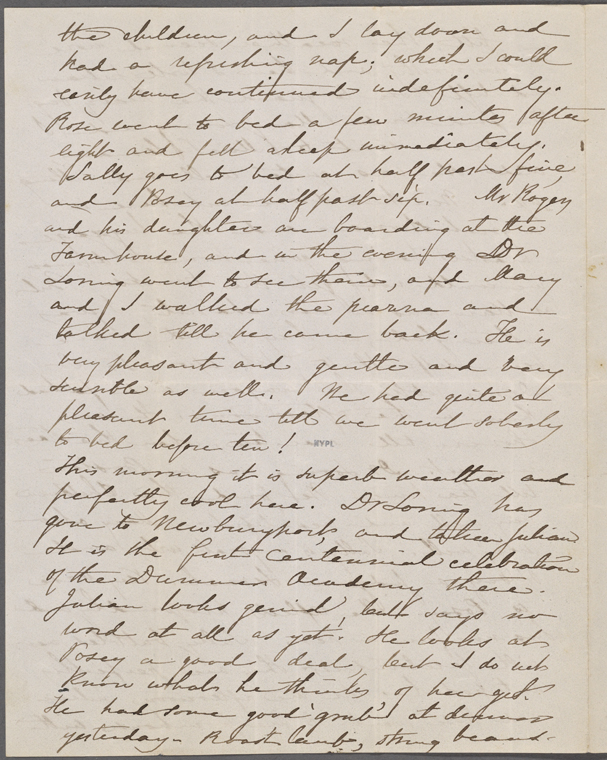 the children, and I lay down and
had a refreshing nap; which I could
easily have continued indefinitely.
Rose went to bed a few minutes after
eight and fell asleep immediately.
Sally goes to bed at half past five
and Posey at half past six. Mr Rogers
and his daughters are boarding at the
Farmhouse, and in the evening Dr
Loring went to see them, and Mary
and I walked the piazza and
talked till he came back. He is
very pleasant and gentle and very
sensible as well. We had quite a
pleasant time till we went soberly
to bed before ten!
NYPL
This morning it is superb weather and
perfectly cool here. Dr Loring has
gone to Newburyport, and taken Julian
It is the first centennial celebration
of the Dummer Academy there.
Julian looks but says no
word at all as yet! He looks at
Posey a good deal, but I do not
know what he thinks of her yet.
He had some good 'grub' at dinner
yesterday - Roast lamb, string beans-